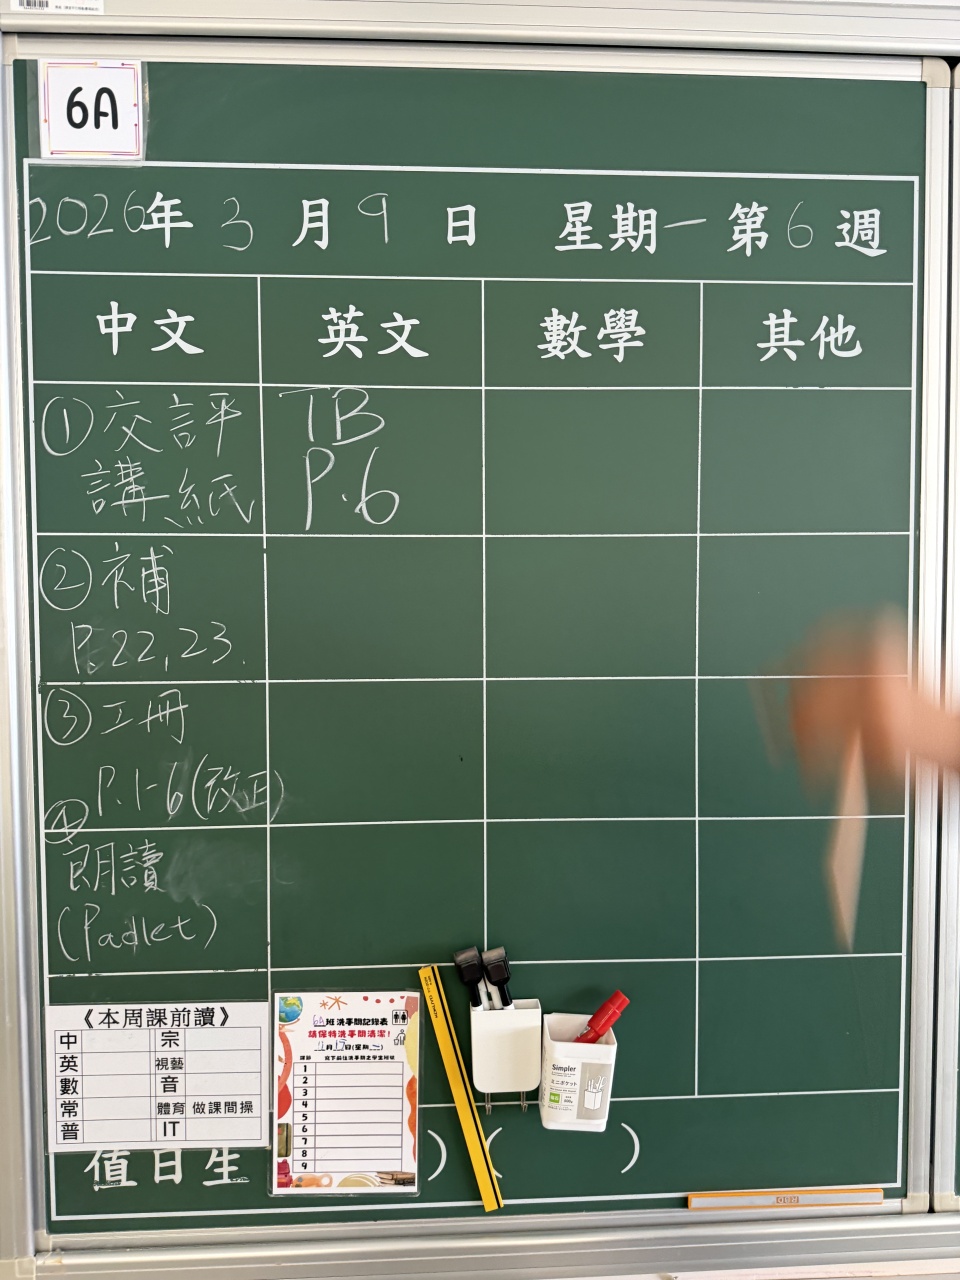 6A
2026年 3 月 9 日 星期一 第 6 週
中文 英文 數學 其他
①交評
講紙
TB
P.6
②補
P.22,23.
③工冊
P.1-6(改正)
④
朗讀
(Padlet)
《本周課前讀》
中 宗
英 視藝
數 音
常 體育 做課間操
普 IT
6A班洗手間記錄表
請保持洗手間清潔!
1
2
3
4
5
6
7
8
9
Simpler
ミニポケット
值日生 ) ( )